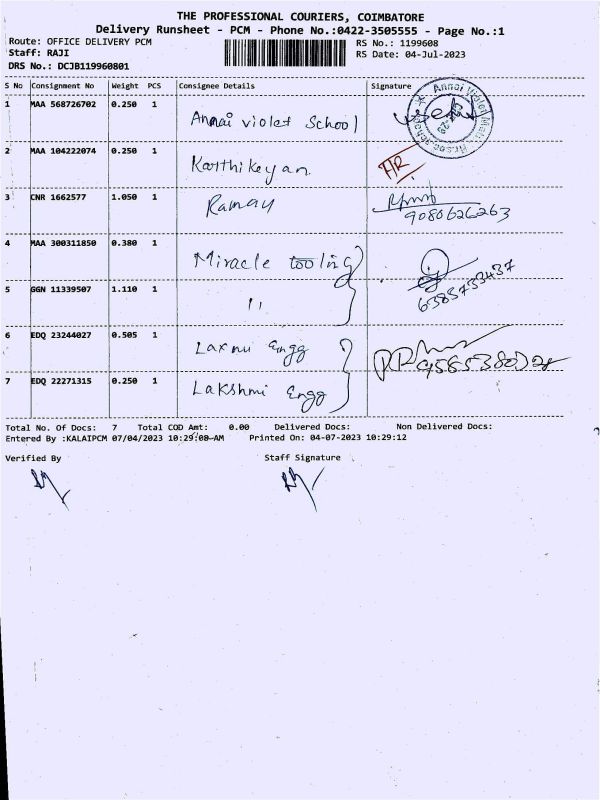 THE PROFESSIONAL COURIERS, COIMBATORE
Delivery Runsheet - PCM - Phone No.:0422-3505555 - Page No.:1
Route: OFFICE DELIVERY PCM
RS No.: 1199608
Staff: RAJI
RS Date: 04-Jul-2023
DRS No.: DCJB119960801
S No Consignment No Weight PCS Consignee Details Signature
1 MAA 568726702 0.250 1 Annai violet School
Annai Violet
2 MAA 104222074 0.250 1 Karthikeyan HR
3 CNR 1662577 1.050 1 Ramay
9080626263
4 MAA 300311850 0.380 1 Miracle tooling
5 GGN 11339507 1.110 1 11
6385753437
6 EDQ 23244027 0.505 1 Laxmi Engg
7 EDQ 22271315 0.250 1 Lakshmi Engg
Total No. Of Docs: 7 Total COD Amt: 0.00 Delivered Docs: Non Delivered Docs:
Entered By :KALAIPCM 07/04/2023 10:29:08-AM Printed On: 04-07-2023 10:29:12
Verified By Staff Signature